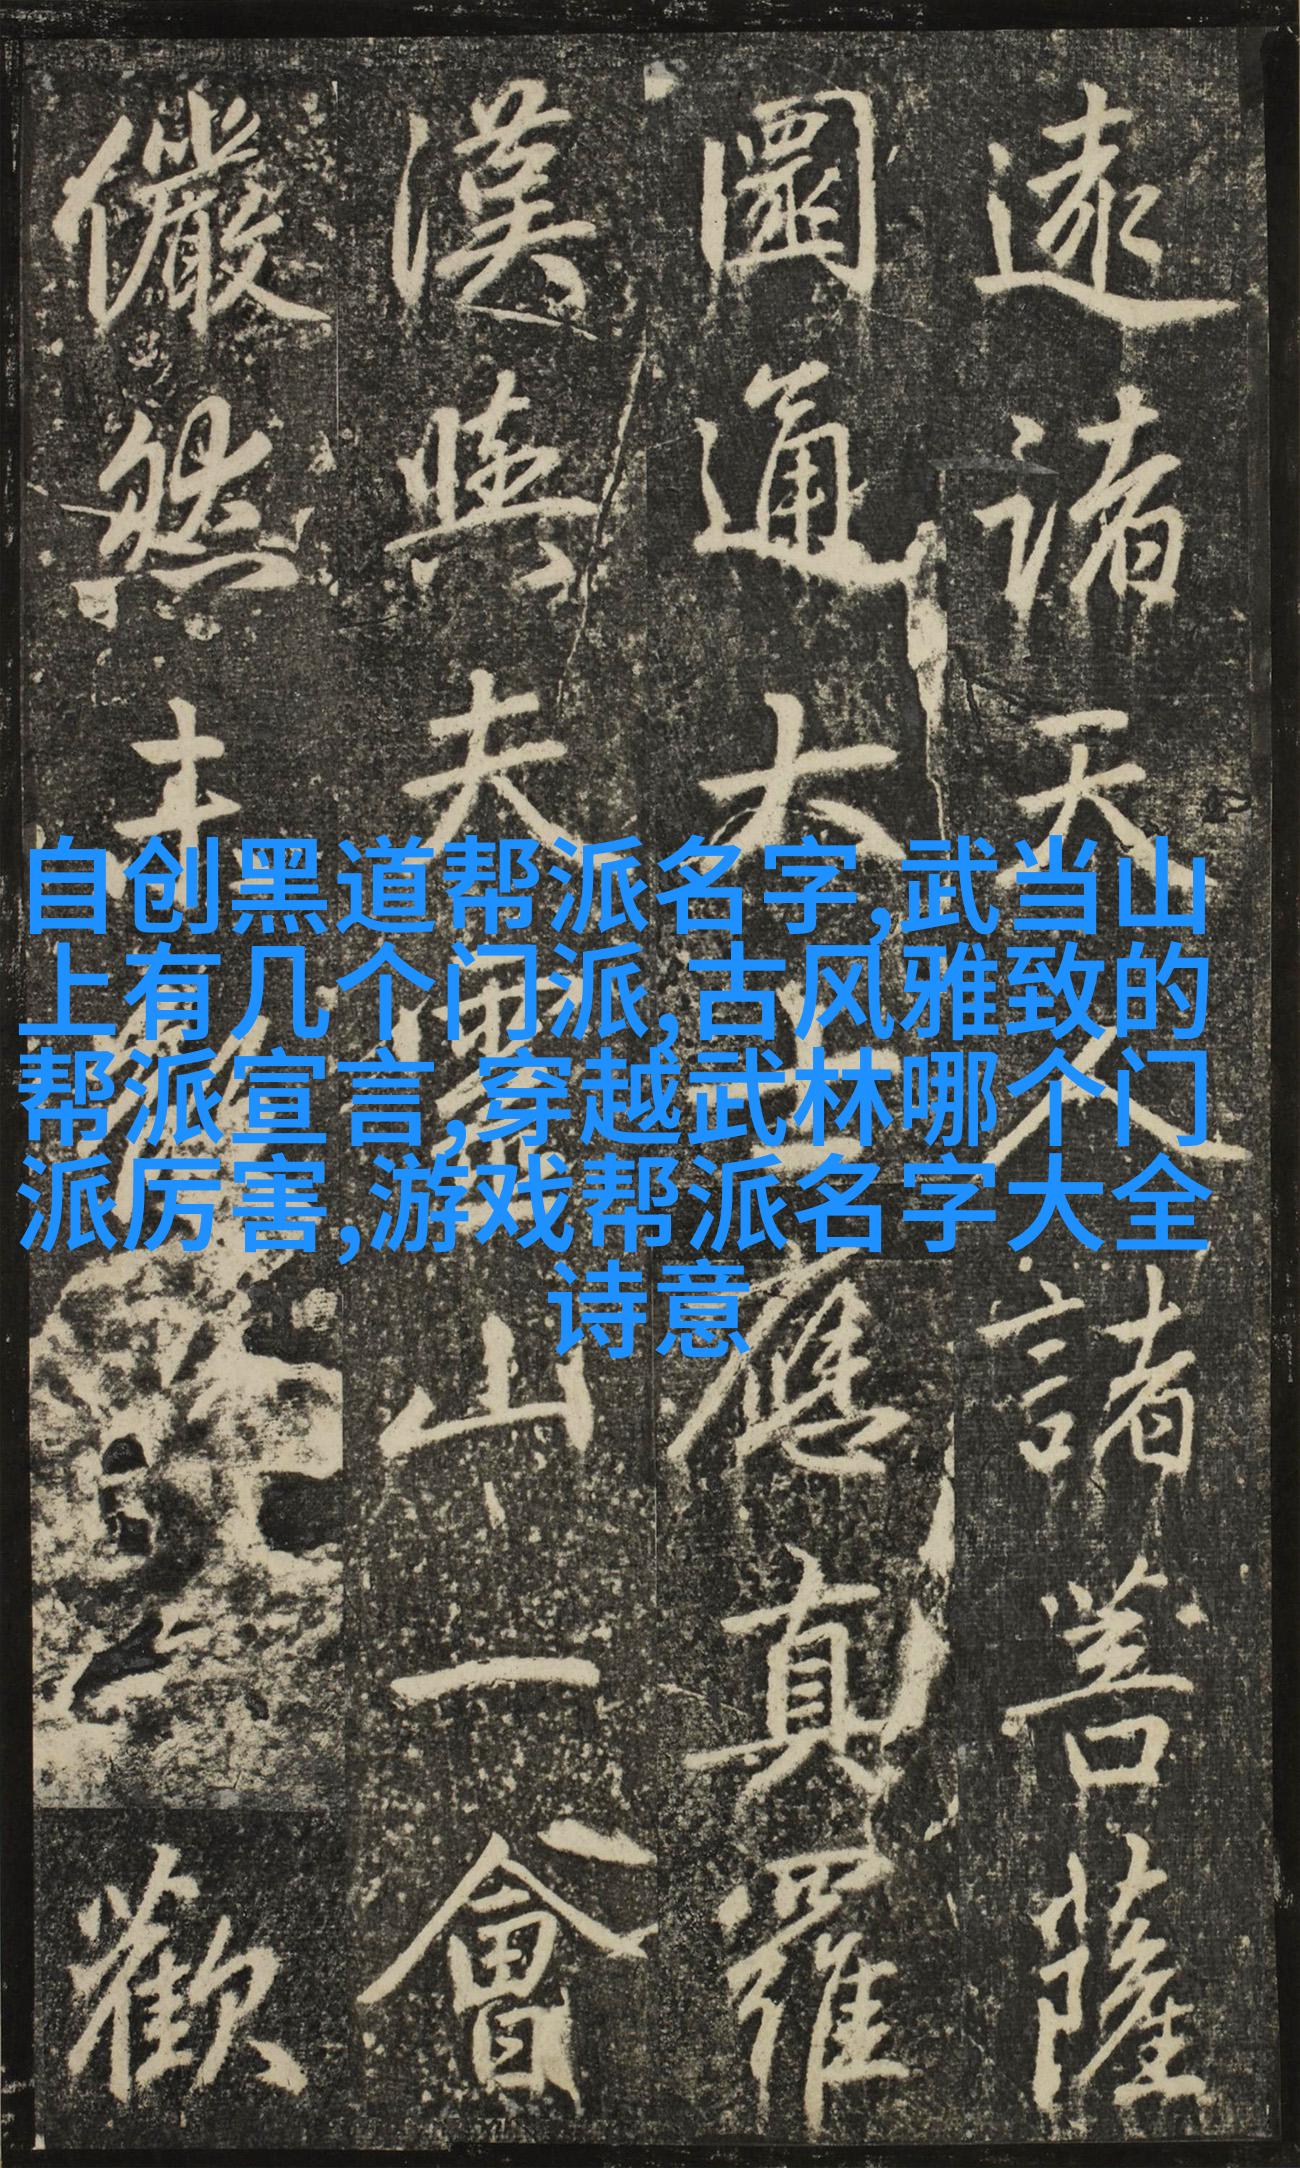 遠諸天人諸菩薩
圓通大士應真羅
漢與夫靈山一會
儼然未歡
自创黑道帮派名字,武当山
上有几个门派,古风雅致的
帮派宣言,穿越武林哪个门
派厉害,游戏帮派名字大全
诗意